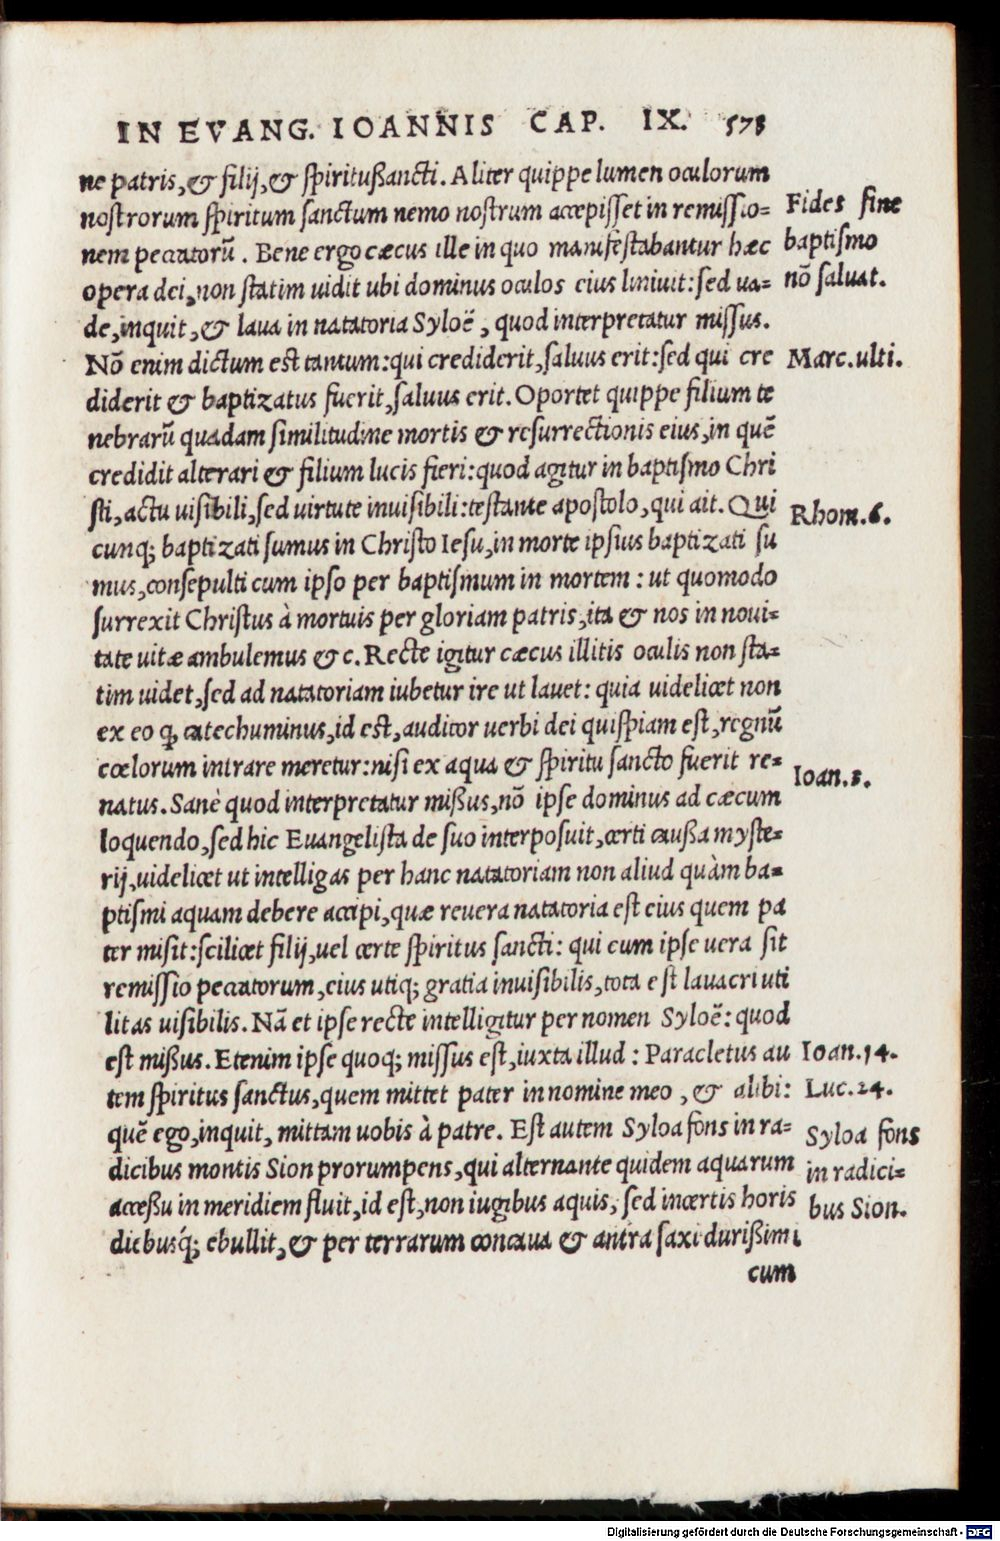 IN EVANG. IOANNIS CAP. IX. 575
ne patris, & filij, & spiritußancti. Aliter quippe lumen oculorum
nostrorum spiritum sanctum nemo nostrum accepisset in remissio=
nem peccatorũ. Bene ergo cæcus ille in quo manifestabantur hæc
opera dei, non statim uidit ubi dominus oculos eius liniuit: sed ua=
de, inquit, & laua in natatoria Syloẽ, quod interpretatur missus.
Nõ enim dictum est tantum: qui crediderit, saluus erit: sed qui cre
diderit & baptizatus fuerit, saluus erit. Oportet quippe filium te
nebrarũ quadam similitudine mortis & resurrectionis eius, in quẽ
credidit alterari & filium lucis fieri: quod agitur in baptismo Chri
sti, actu uisibili, sed uirtute inuisibili: testante apostolo, qui ait. Qui
cunq; baptizati sumus in Christo Iesu, in morte ipsius baptizati su
mus, consepulti cum ipso per baptismum in mortem: ut quomodo
surrexit Christus à mortuis per gloriam patris, ita & nos in noui=
tate uitæ ambulemus &c. Recte igitur cæcus illitis oculis non sta=
tim uidet, sed ad natatoriam iubetur ire ut lauet: quia uidelicet non
ex eo q̃, catechuminus, id est, auditor uerbi dei quispiam est, regnũ
cœlorum intrare meretur: nisi ex aqua & spiritu sancto fuerit re=
natus. Sanè quod interpretatur mißus, nõ ipse dominus ad cæcum
loquendo, sed hic Euangelista de suo interposuit, certi caußa myste=
rij, uidelicet ut intelligas per hanc natatoriam non aliud quàm ba=
ptismi aquam debere accipi, quæ reuera natatoria est eius quem pa
ter misit: scilicet filij, uel certe spiritus sancti: qui cum ipse uera sit
remissio peccatorum, eius utiq; gratia inuisibilis, tota est lauacri uti
litas uisibilis. Nã et ipse recte intelligitur per nomen Syloẽ: quod
est mißus. Etenim ipse quoq; missus est, iuxta illud: Paracletus au
tem spiritus sanctus, quem mittet pater in nomine meo, & alibi:
quẽ ego, inquit, mittam uobis à patre. Est autem Syloa fons in ra=
dicibus montis Sion prorumpens, qui alternante quidem aquarum
acceßu in meridiem fluit, id est, non iugibus aquis, sed incertis horis
diebusq́; ebullit, & per terrarum concaua & antra saxi durißimi
cum
Fides sine
baptismo
nõ saluat.
Marc. ulti.
Rhom. 6.
Ioan. 3.
Ioan. 14.
Luc. 24.
Syloa fons
in radici=
bus Sion.
Digitalisierung gefördert durch die Deutsche Forschungsgemeinschaft - DFG